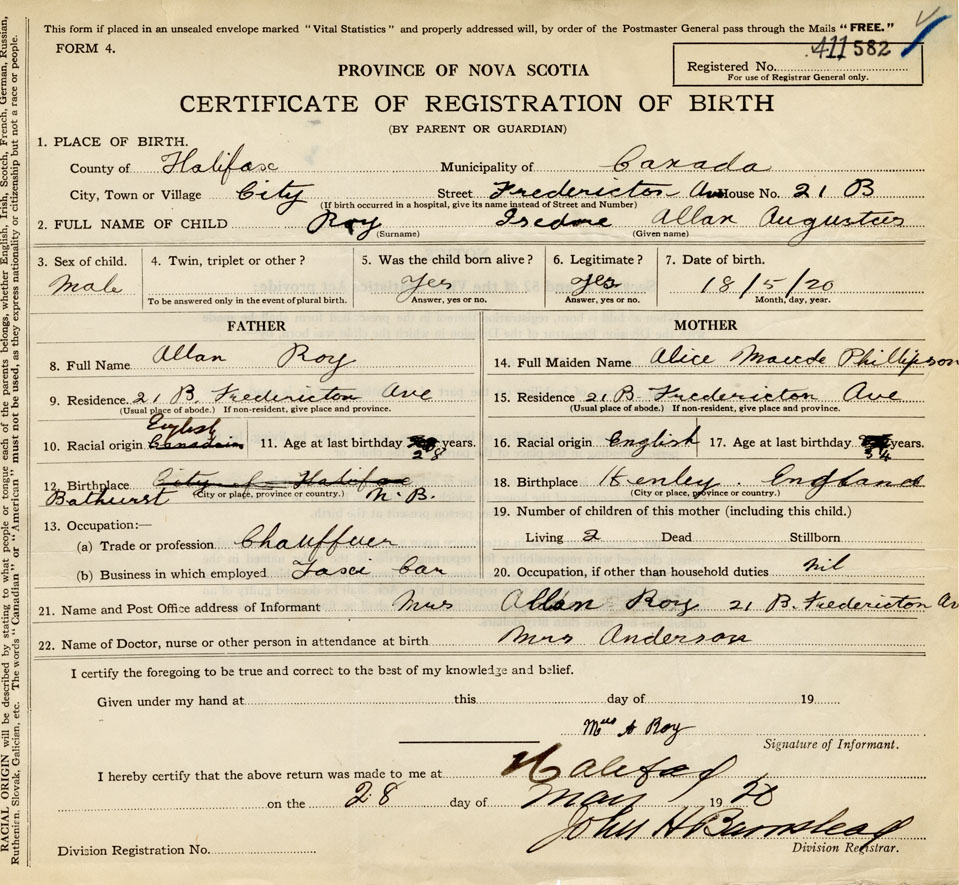 This form if placed in an unsealed envelope marked "Vital Statistics" and properly addressed will, by order of the Postmaster General pass through the Mails "FREE."
FORM 4.
411582
Registered No.
For use of Registrar General only.
PROVINCE OF NOVA SCOTIA
CERTIFICATE OF REGISTRATION OF BIRTH
(BY PARENT OR GUARDIAN)
1. PLACE OF BIRTH.
County of Halifax Municipality of Canada
City, Town or Village City Street Fredericton Ave House No. 21 B
(If birth occurred in a hospital, give its name instead of Street and Number)
2. FULL NAME OF CHILD Roy Isedore Allan Augustus
(Surname) (Given name)
3. Sex of child. 4. Twin, triplet or other? 5. Was the child born alive? 6. Legitimate? 7. Date of birth.
Male Yes yes 18/5/20
To be answered only in the event of plural birth. Answer, yes or no. Answer, yes or no. Month, day, year.
FATHER MOTHER
8. Full Name Allan Roy
14. Full Maiden Name Alice Maude Phillipson
9. Residence 21 B. Fredericton Ave
15. Residence 21 B. Fredericton Ave
(Usual place of abode.) If non-resident, give place and province.
(Usual place of abode.) If non-resident, give place and province.
English
10. Racial origin Canadain 11. Age at last birthday 28 years.
16. Racial origin English 17. Age at last birthday 34 years.
12. Birthplace City of Halifax
18. Birthplace Henley. England
Bathurst (City or place, province or country.) N.B.
(City or place, province or country.)
19. Number of children of this mother (including this child.)
13. Occupation:—
(a) Trade or profession Chauffuer
Living 2 Dead Stillborn
(b) Business in which employed Taxi Car
20. Occupation, if other than household duties nil
21. Name and Post Office address of Informant Mrs Allan Roy 21 B. Fredericton Av
22. Name of Doctor, nurse or other person in attendance at birth Mrs Anderson
I certify the foregoing to be true and correct to the best of my knowledge and belief.
Given under my hand at this day of 19
Mrs A Roy
Signature of Informant.
I hereby certify that the above return was made to me at Halifax
on the 28 day of May 1920
John H Barnstead
Division Registration No. Division Registrar.
RACIAL ORIGIN will be described by stating to what people or tongue each of the parents belongs, whether English, Irish, Scotch, French, German, Russian,
Ruthenian, Slovak, Galician, etc. The words "Canadian" or "American" must not be used, as they express nationality or citizenship but not a race or people.